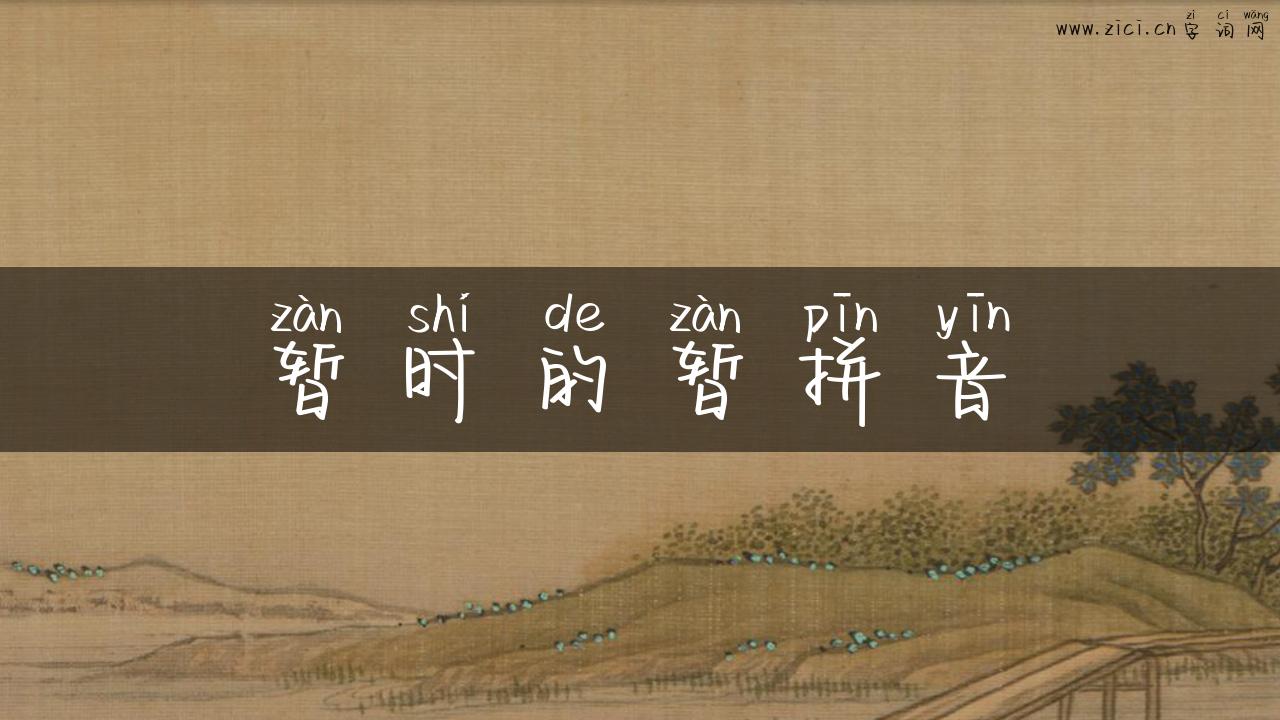 zì cí wǎng
www.zici.cn字词网
zàn shí de zàn pīn yīn
暂时的暂拼音